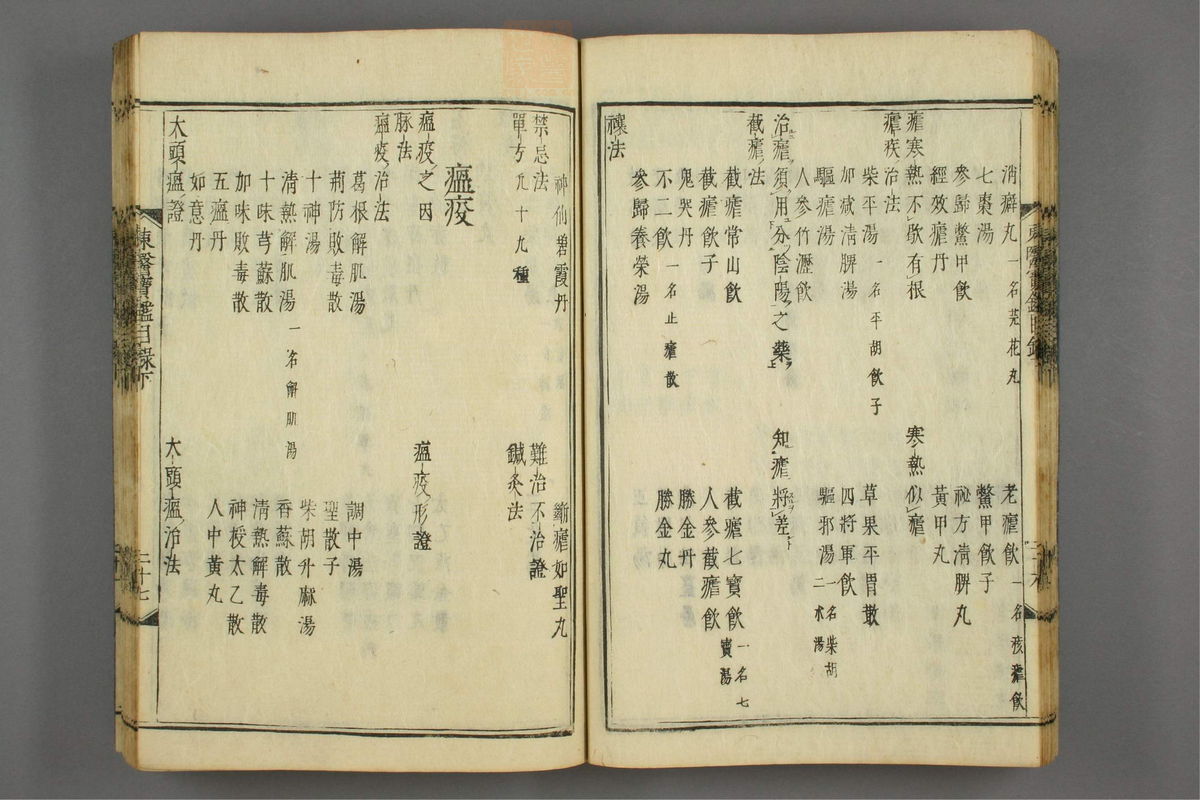 消癖丸一名芫花丸 老瘧飮一名痎瘧飮
七棗湯 鱉甲飮子
參歸鱉甲飮 祕方清脾丸
經效瘧丹 黃甲丸
瘧寒熱不歇有根 寒熱似瘧
瘧疾治法
柴平湯一名平胡飮子 草果平胃散
加減清脾湯 四將軍飮
驅瘧湯 驅邪湯一名柴胡二朮湯
人參竹瀝飮
治瘧須用分陰陽之藥 知瘧將差
截瘧法
截瘧常山飮 截瘧七寶飮一名七寶湯
截瘧飮子 人參截瘧飮
鬼哭丹 勝金丹
不二飮一名止瘧散 勝金丸
參歸養榮湯
禳法
東醫寶鑑目錄下 二十六
神仙碧霞丹 斷瘧如聖丸
禁忌法 難治不治證
單方九十九種 鍼灸法
瘟疫
瘟疫之因 瘟疫形證
脉法
瘟疫治法
葛根解肌湯 調中湯
荊防敗毒散 聖散子
十神湯 柴胡升麻湯
清熱解肌湯一名解肌湯 香蘇散
十味芎蘇散 清熱解毒散
加味敗毒散 神授太乙散
五瘟丹 人中黃丸
如意丹
大頭瘟證 大頭瘟治法
東醫寶鑑目錄下 二十七